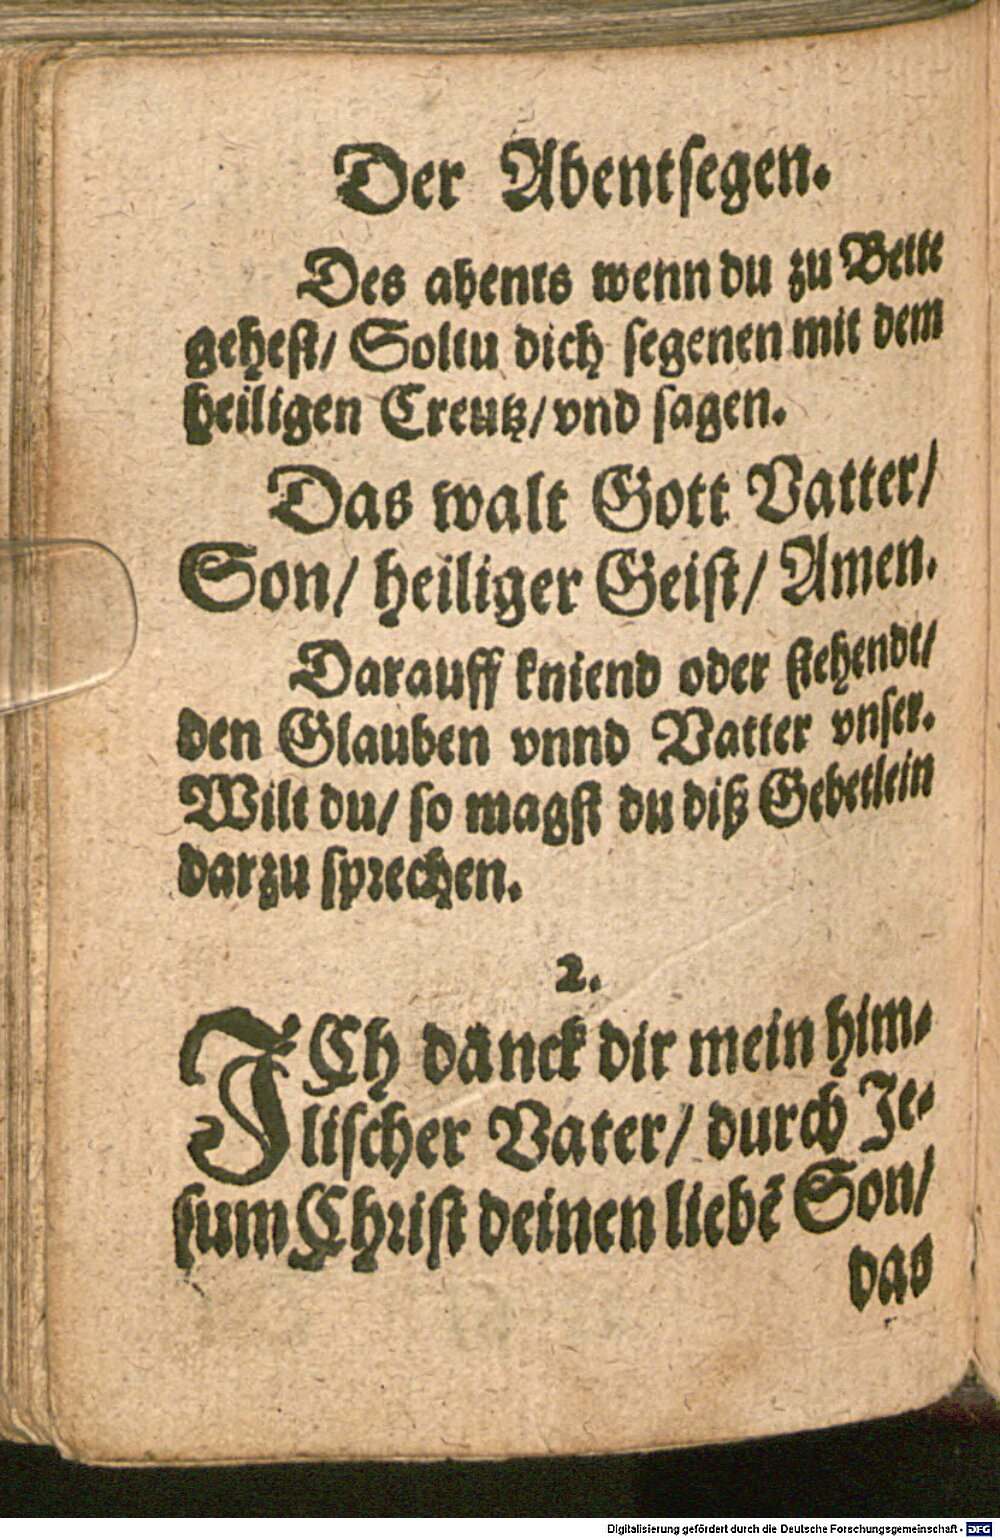 Der Abentsegen.
Des abents wenn du zu Bette
gehest/ Soltu dich segenen mit dem
heiligen Creutz/ vnd sagen.
Das walt Gott Vatter/
Son/ heiliger Geist/ Amen.
Darauff kniend oder stehendt/
den Glauben vnnd Vatter vnser.
Wilt du/ so magst du diß Gebetlein
darzu sprechen.
2.
ICh dänck dir mein him-
lischer Vater/ durch Je-
sum Christ deinen liebẽ Son/
das
Digitalisierung gefördert durch die Deutsche Forschungsgemeinschaft - DFG